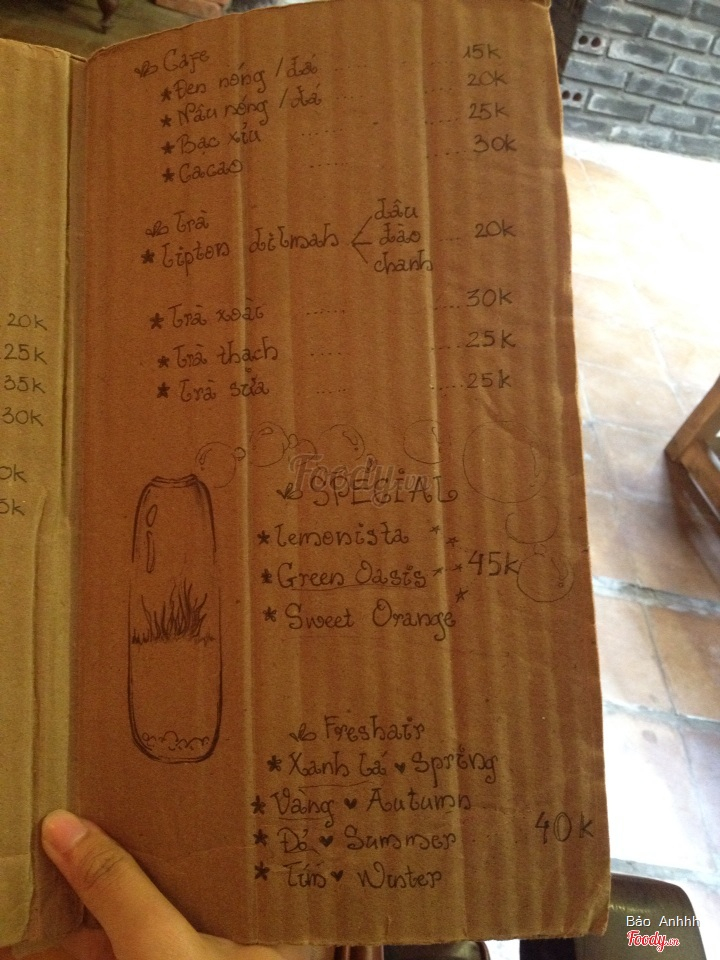 Cafe
* Đen nóng / đá ........ 15k
* Nâu nóng / đá ........ 20k
* Bạc xỉu ........ 25k
* Cacao ........ 30k
Trà
* Lipton dilmah dâu đào chanh .... 20k
* Trà xoài ........ 30k
* Trà thạch ........ 25k
* Trà sữa ........ 25k
20k
25k
35k
30k
0k
5k
Foody.vn
SPECIAL
* Lemonista
* Green Oasis 45k
* Sweet Orange
Freshair
* Xanh lá ♥ Spring
* Vàng ♥ Autumn
* Đỏ ♥ Summer .... 40k
* Tím ♥ Winter
Bảo Anhhh
Foody.vn